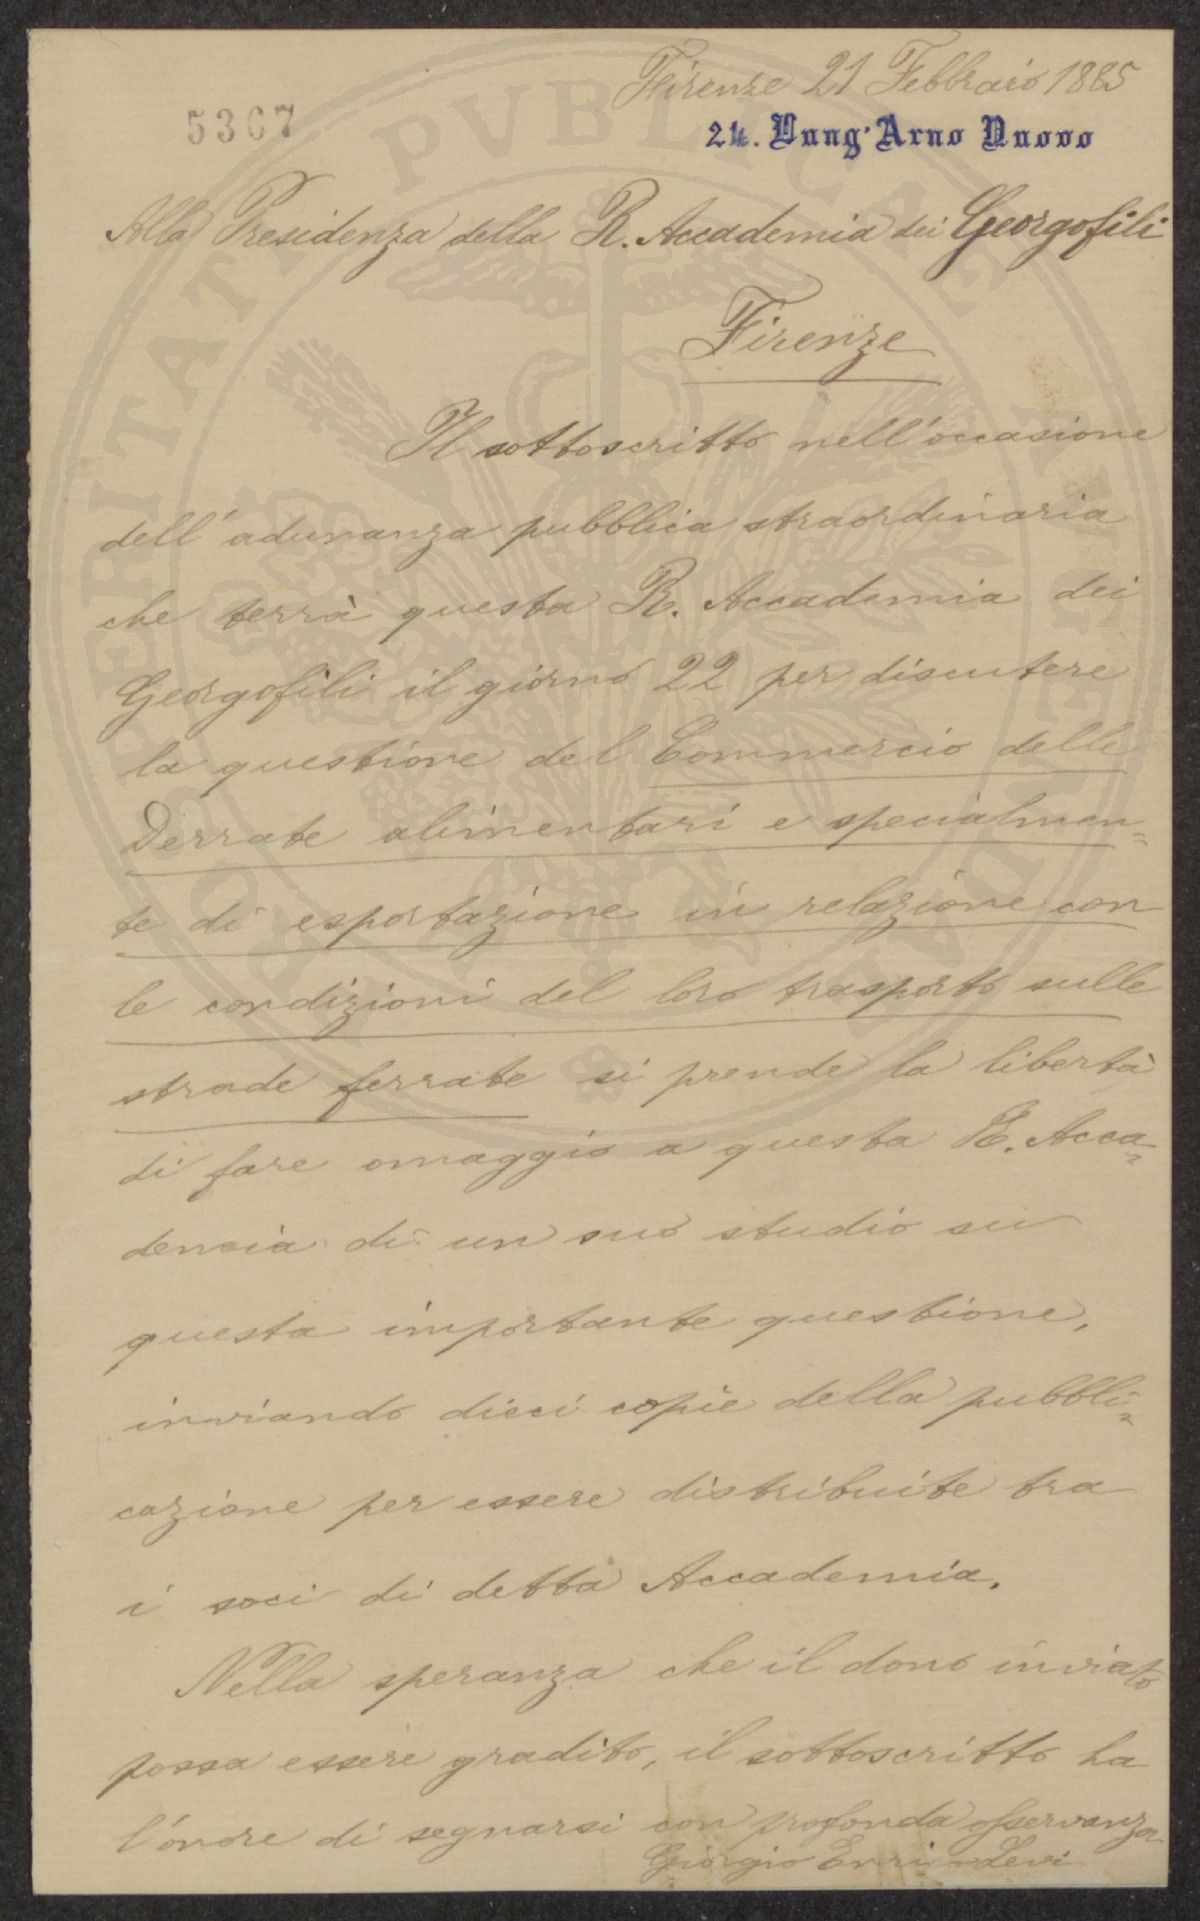 Firenze 21 Febbraio 1885
5367
24. Lung'Arno Nuovo
Alla Presidenza della R. Accademia dei Georgofili
Firenze
Il sottoscritto nell'occasione
dell'adunanza pubblica straordinaria
che terrà questa R. Accademia dei
Georgofili il giorno 22 per discutere
la questione del Commercio delle
Derrate alimentari e specialmen=
te di esportazione in relazione con
le condizioni del loro trasporto sulle
strade ferrate si prende la libertà
di fare omaggio a questa R. Acca=
demia di un suo studio su
questa importante questione,
inviando dieci copie della pubbli=
cazione per essere distribuite tra
i soci di detta Accademia.
Nella speranza che il dono inviato
possa essere gradito, il sottoscritto ha
l'onore di segnarsi con profonda osservanza
Giorgio Enrico Levi
PROSPERITATI PUBLICAE AUGENDAE